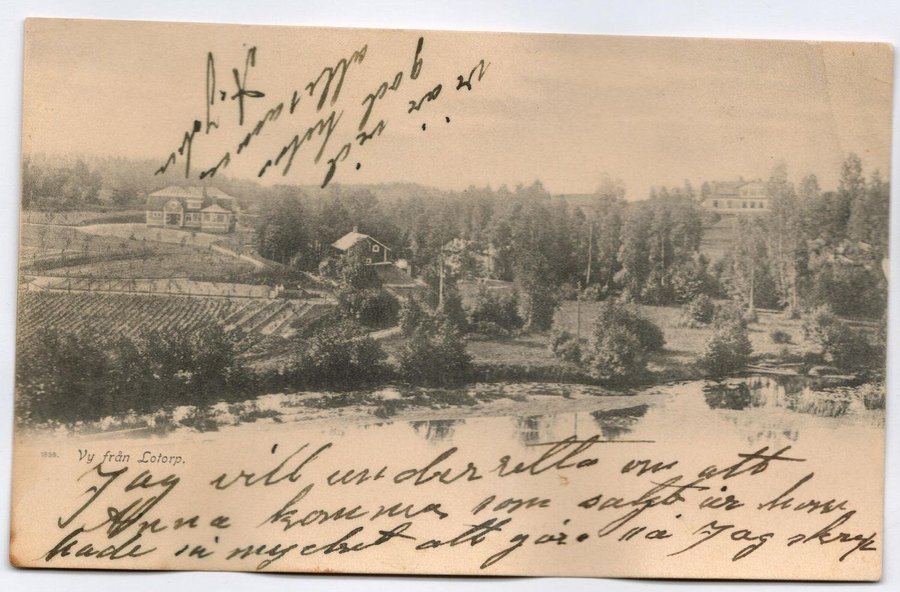 vi är
god helsa
allesamen
1898. Vy från Lotorp.
Jag vill underretta om att
Anna kommer som sagt är hon
hade så mycket att göra så Jag skref